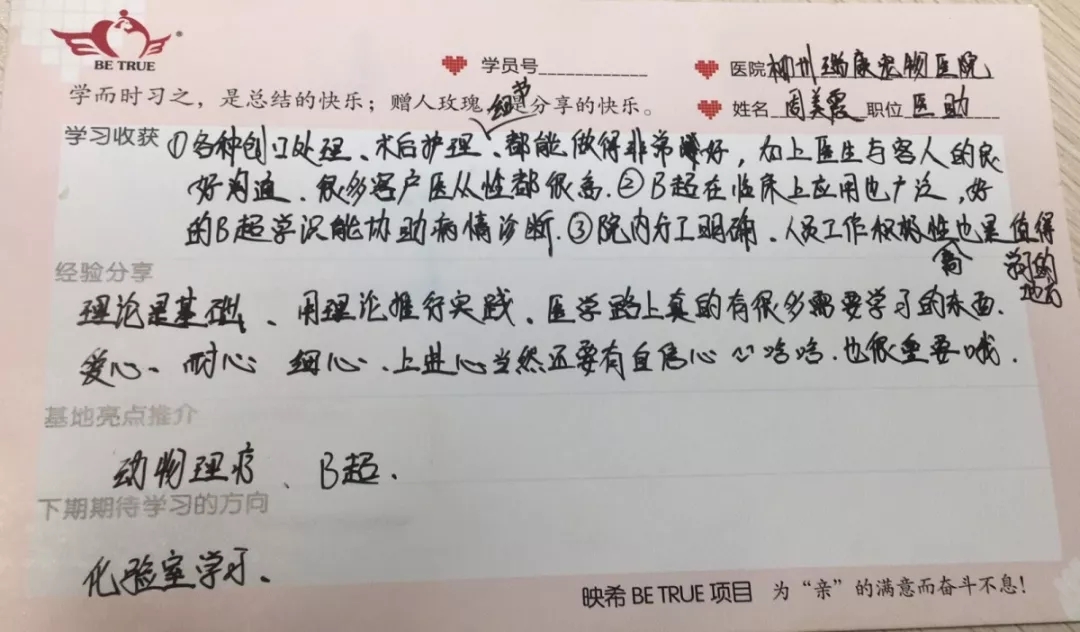 BE TRUE
学员号
医院 柳州瑞康宠物医院
学而时习之，是总结的快乐；赠人玫瑰，是分享的快乐。
姓名 周美霞 职位 医助
细节
学习收获 ①各种创口处理、术后护理、都能做得非常好，加上医生与客人的良
好沟通、很多客户医从性都很高.②B超在临床上应用也广泛，好
的B超学识能协助病情诊断.③院内分工明确、人员工作积极性也是值得
高
学习的
地方
经验分享
理论是基础、用理论推行实践、医学路上真的有很多需要学习的东西.
爱心、耐心 细心、上进心当然还要有自信心~哈哈.也很重要哦.
基地亮点推介
动物理疗、B超.
下期期待学习的方向
化验室学习、
映希 BE TRUE 项目 为“亲”的满意而奋斗不息!